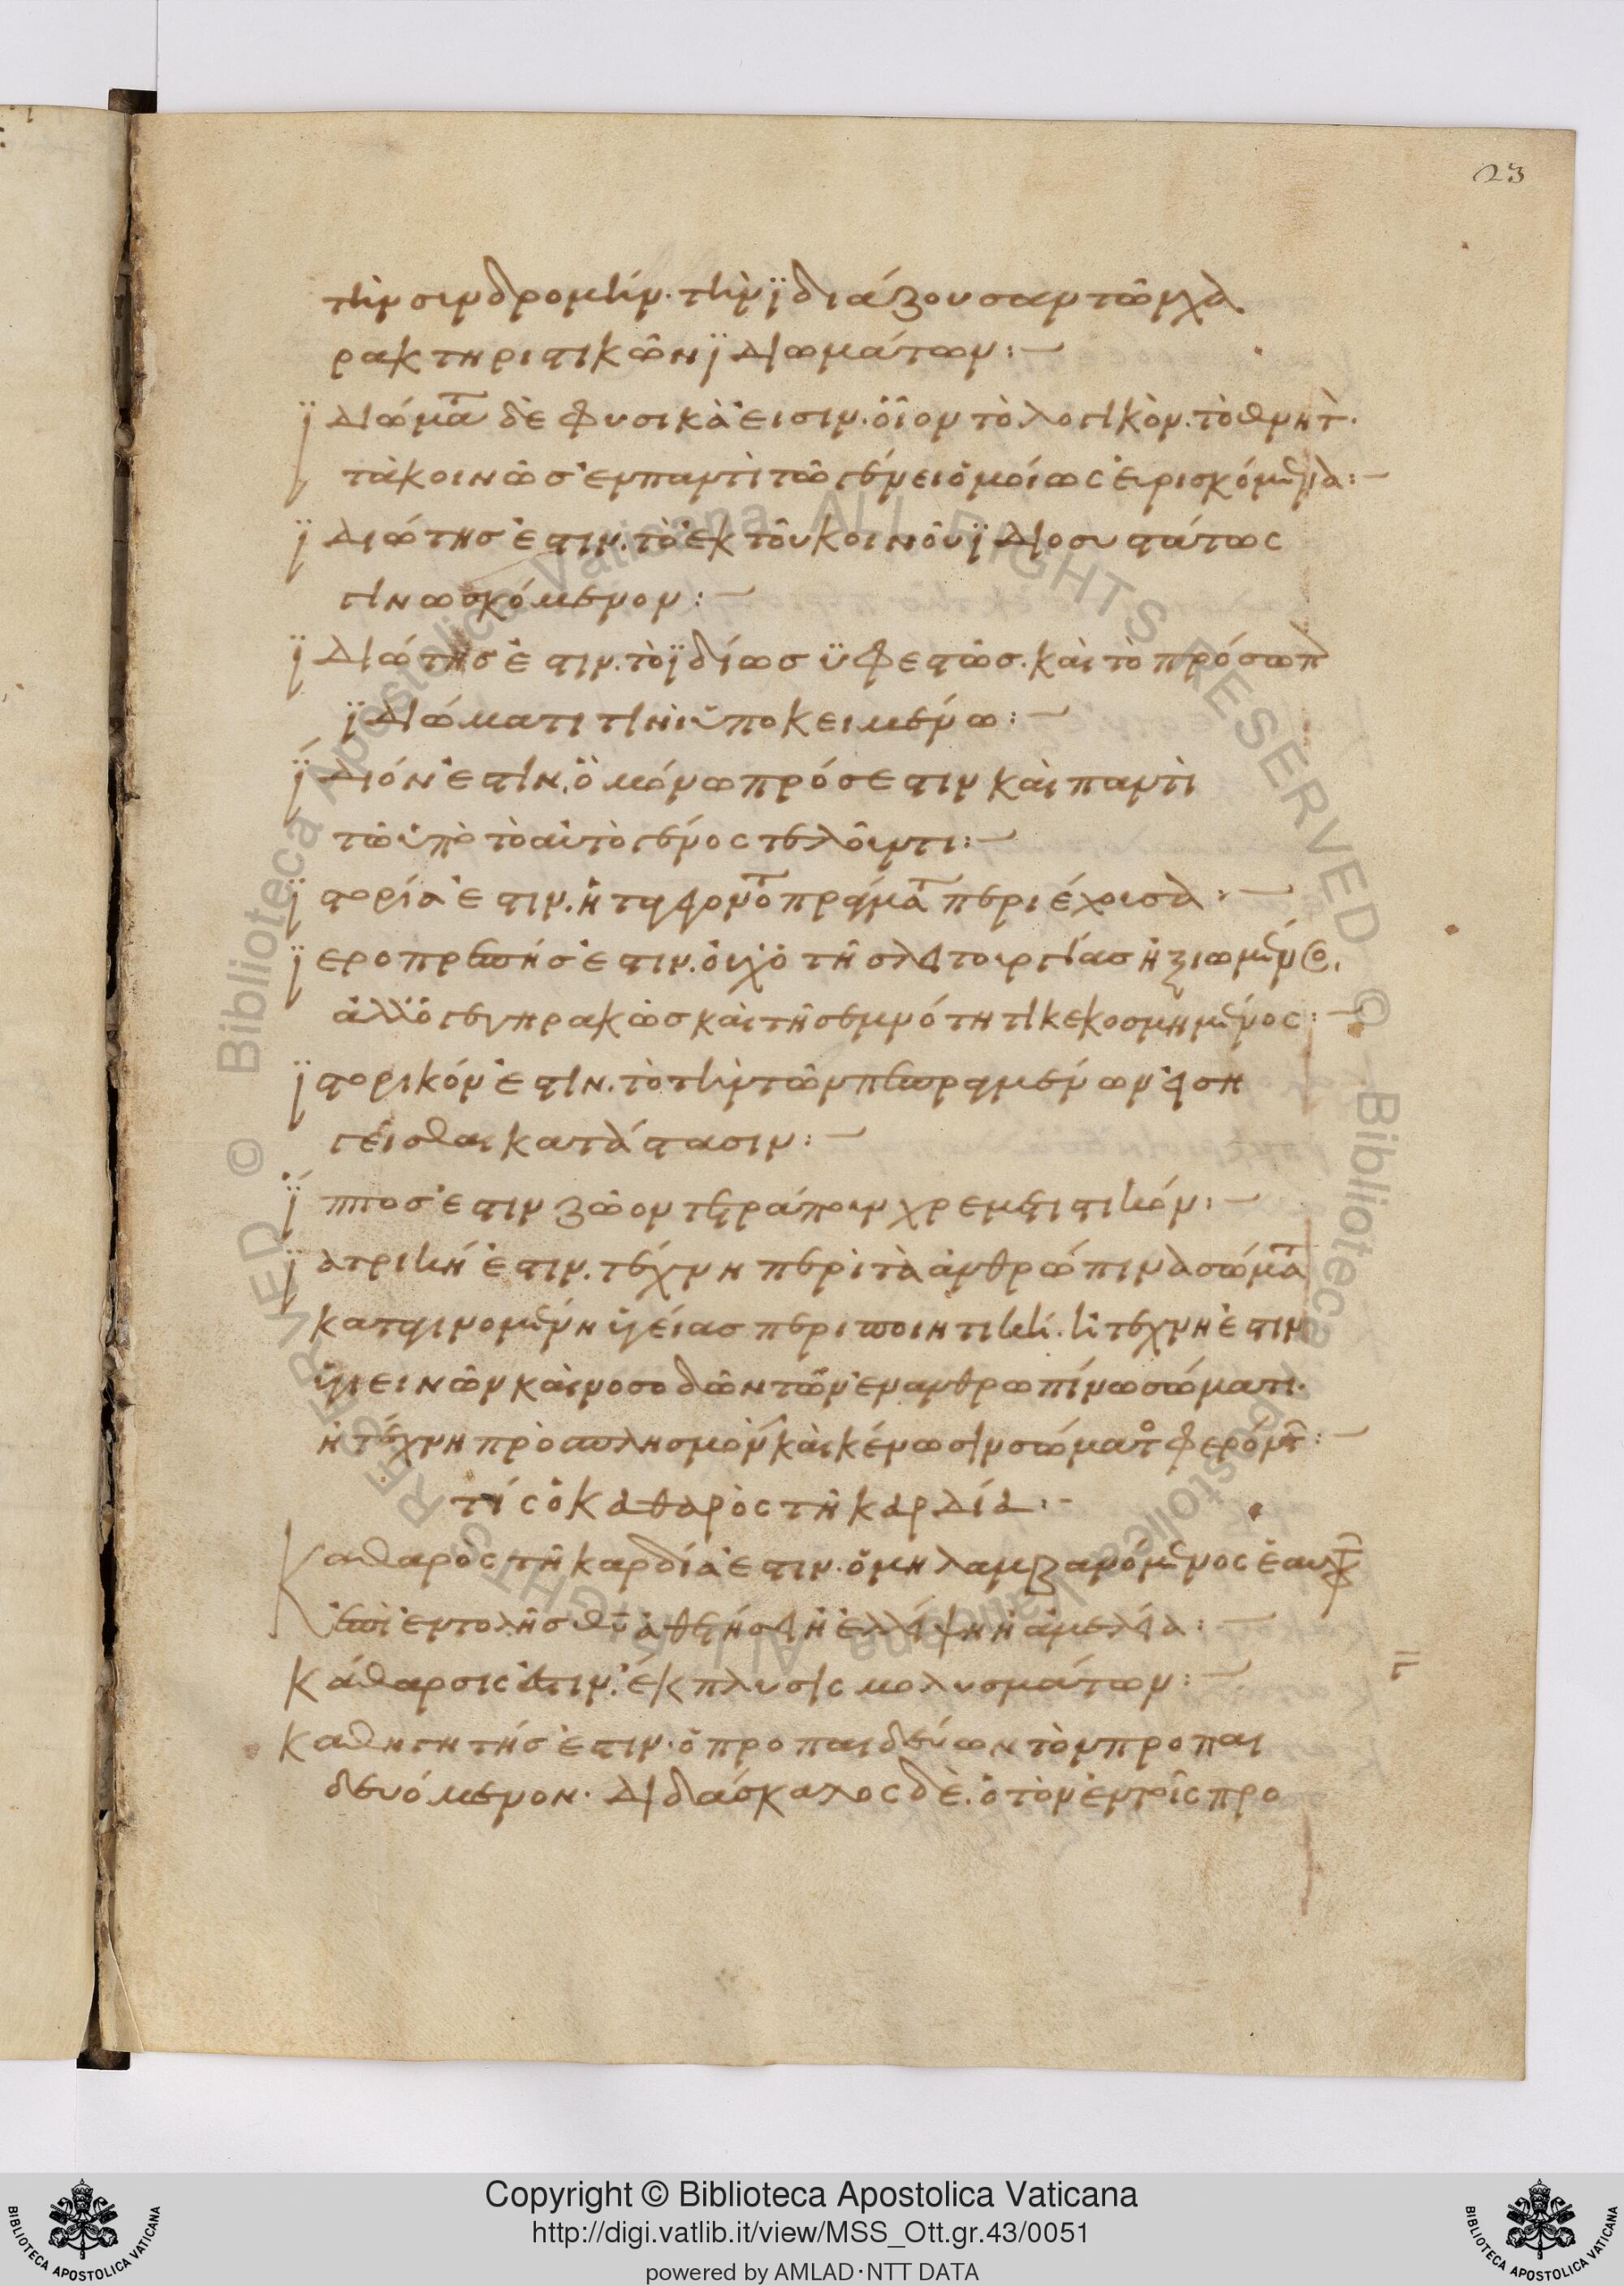 23
τὴν συνδρομὴν· τὴν ϊδιάζουσαν τῶν χα
ρακτηριστικῶν ϊδιωμάτων:—
ϊδιώματα δὲ φυσικὰ ἐισιν· ὅῖον τὸ λογικὸν· τὸ θνητ·
τὰ κοινῶσ ἐν παντὶ τῶ γένει ὁμοίως ἑυρισκόμενα:—
ϊδιώτησ ἐστιν· τὸ ἐκ τοῦ κοινοῦ ϊδιοσυστάτως
γινωσκόμενον:—
ϊδιώτησ ἐστιν· τὸ ϊδίωσ ϋφεστῶσ· καὶ τὸ πρόσωπ
ϊδιώματι τινὶ ὑποκειμένω:—
ϊδιόν ἐστιν, ὃ μόνω πρόσεστιν καὶ παντὶ
τῶ ὑπὸ τὸ αὐτὸ γένος τελοῦντι:—
ϊστορία ἐστιν· ἡ πράγματα περιέχουσα:—
ϊεροπρεπήσ ἐστιν· οὐχ ὁ τῆσ λειτουργίασ ἠξιωμένος,
ἀλλ ὁ γεγηρακὼσ καὶ τῆ σεμνότητι κεκοσμημένος:—
ϊστορικόν ἐστιν· τὸ τὴν τῶν πεπραγμένων
γεῖσθαι κατάστασιν:—
ϊπποσ ἐστιν ζῶον τετράπουν χρεμετιστικόν:—
ϊατρική ἐστιν· τέχνη περὶ τὰ ἀνθρώπινα σώματα
καταγινομένη ὑγείασ περιποιητική· ἢ τέχνη ἐστιν
ὑγιεινῶν καὶ νοσοδῶν τῶν ἐν ανθρωπίνω σώματι·
ἢ τέχνη πρὸσ πλησμονὴν καὶ κένωσιν σώματος φερόμεν:—
τίς ὁ καθαρὸς τῆ καρδία:—
Καθαρὸς τῆ καρδία ἐστιν· ὁ μὴ λαμβανόμενος ἑαυτ
ἐπὶ ἐντολῆσ θυ ἀθετήσει ἢ ἐλλείψει ἢ ἀμελεία:—
Κάθαρσις ἐστιν· ἔκπλυσις μολυσμάτων:—
Καθηγητήσ ἐστιν· ὁ προπαιδεύων τὸν προπαι
δευόμενον· Διδάσκαλος δὲ· ὁ τὸν ἐν τοῖς προ
Copyright © Biblioteca Apostolica Vaticana
http://digi.vatlib.it/view/MSS_Ott.gr.43/0051
powered by AMLAD·NTT DATA
BIBLIOTECA APOSTOLICA VATICANA
BIBLIOTECA APOSTOLICA VATICANA